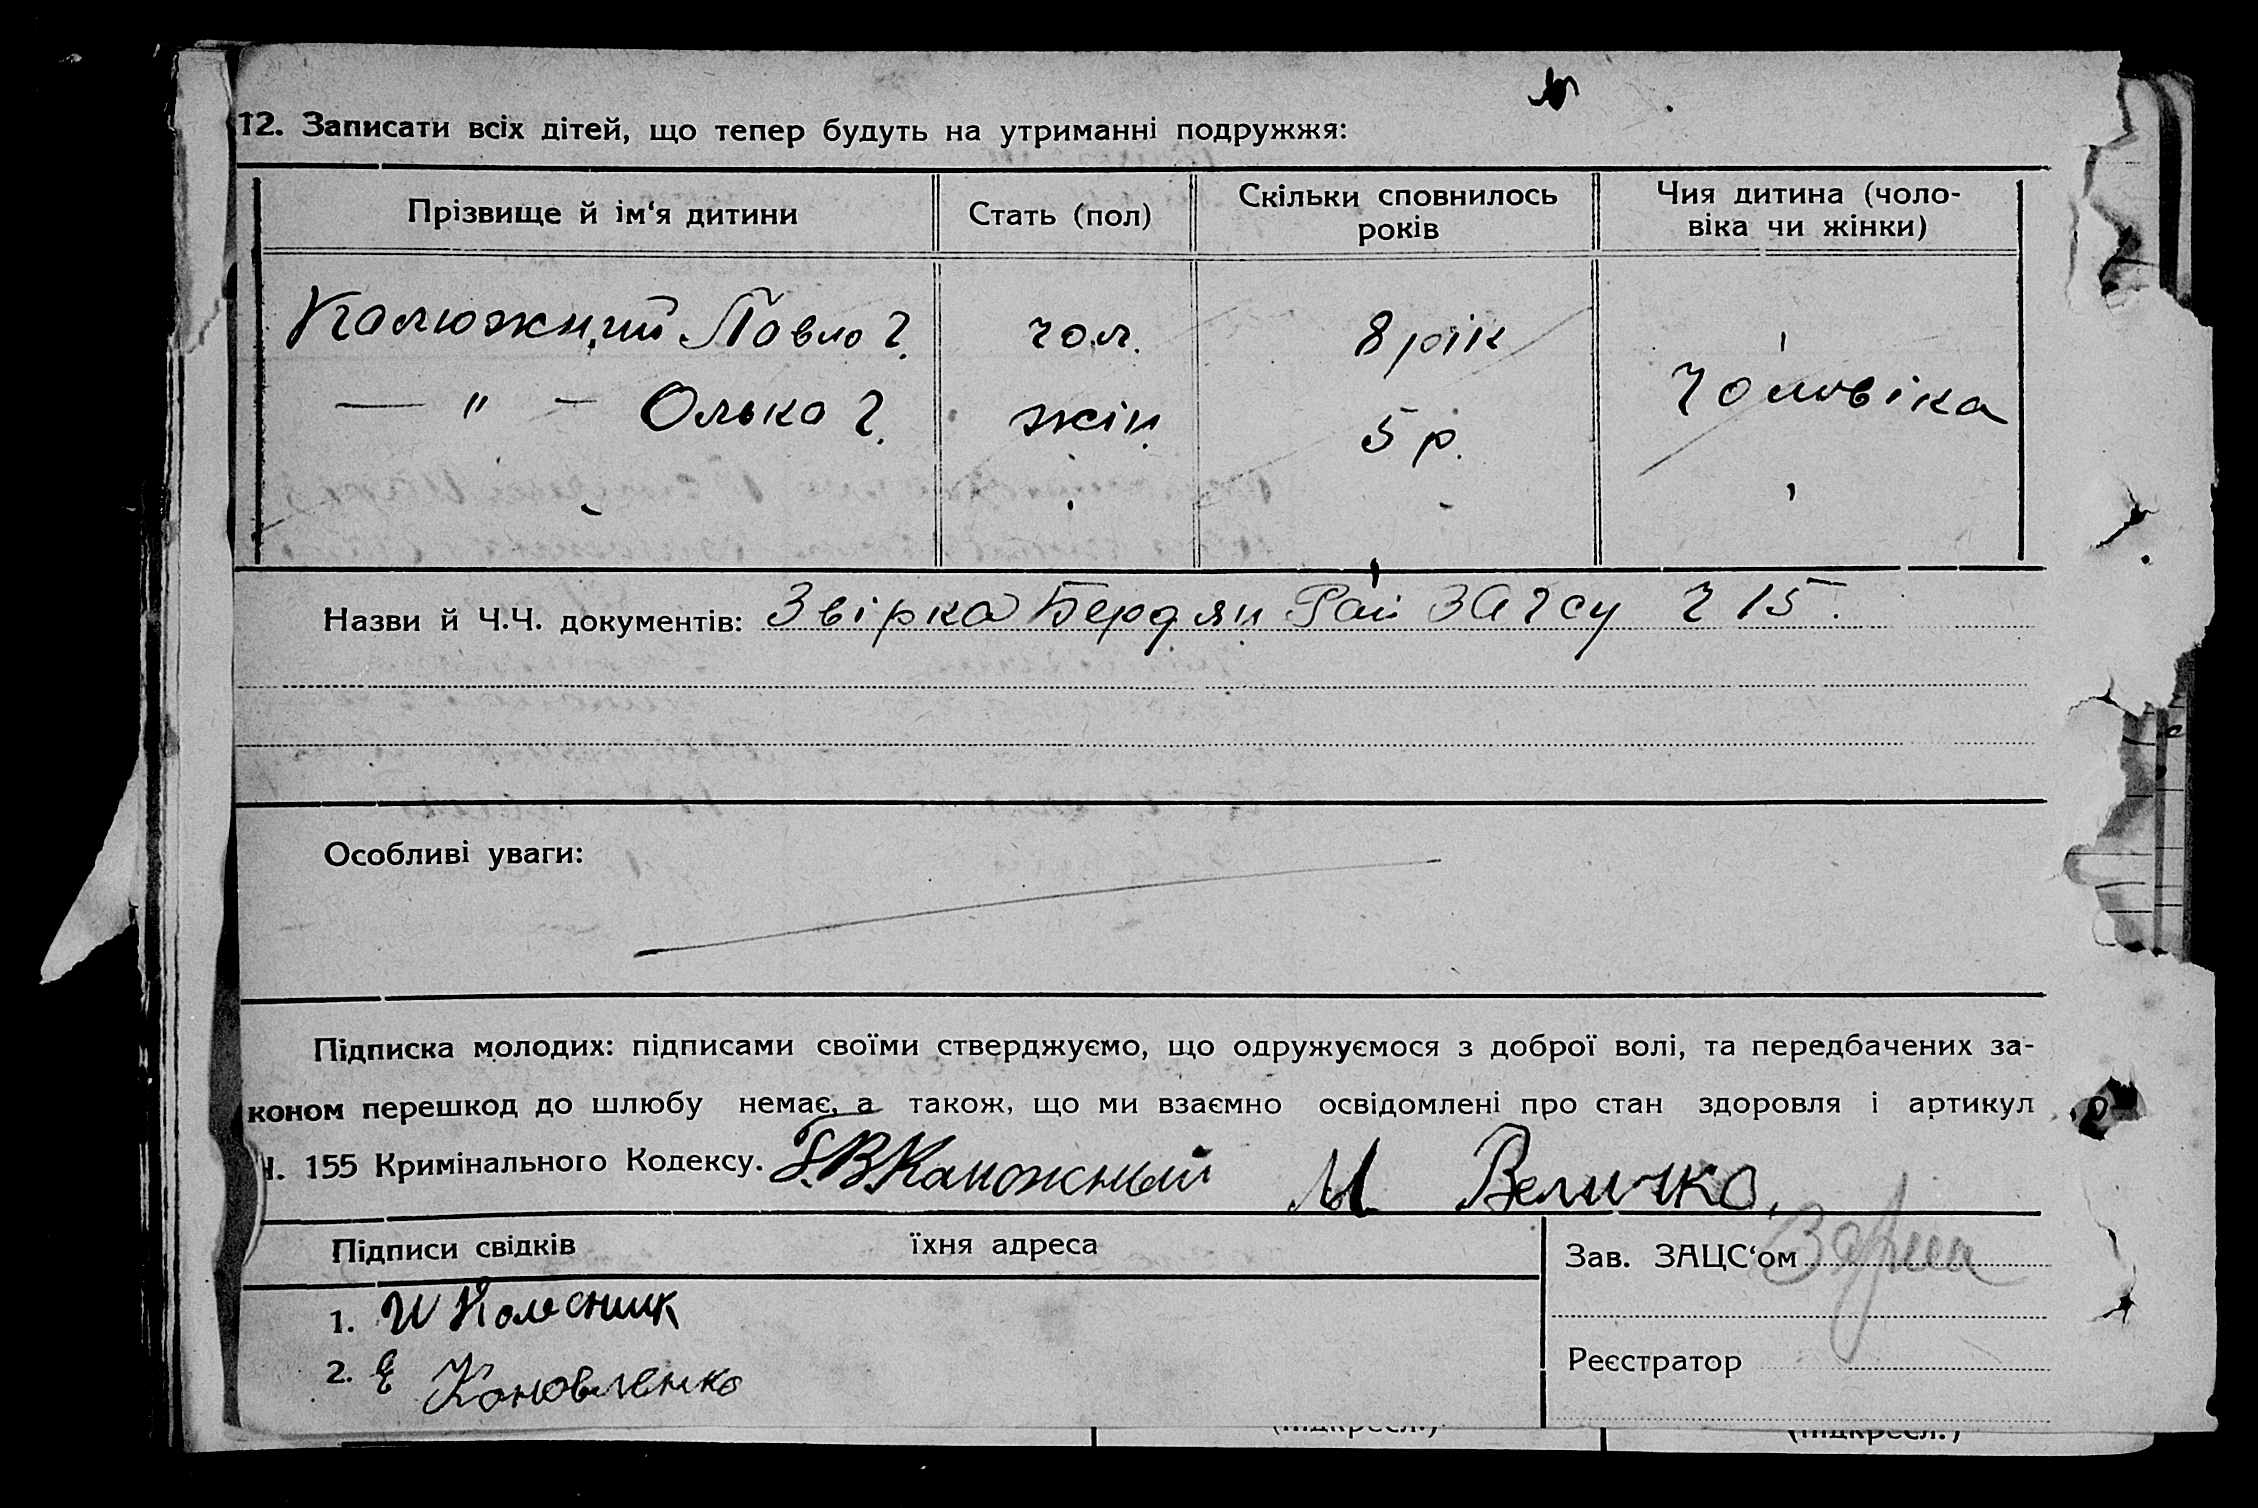 12. Записати всіх дітей, що тепер будуть на утриманні подружжя:
Прізвище й ім'я дитини Стать (пол) Скільки сповнилось років Чия дитина (чоловіка чи жінки)
Калюжний Павло Г. чол. 8 рік
— " — Олька Г. жін. 5 р. Чоловіка
Назви й Ч.Ч. документів: Звірка Бердян Рай ЗАГСу Ч 15.
Особливі уваги:
Підписка молодих: підписами своїми стверджуємо, що одружуємося з доброї волі, та передбачених за-
коном перешкод до шлюбу немає, а також, що ми взаємно освідомлені про стан здоровля і артикул
Ч. 155 Кримінального Кодексу. Г.В.Калюжный М Величко
Підписи свідків їхня адреса Зав. ЗАЦС'ом
1. И Колесник
2. Е Коновленко Реєстратор
(підкресл.) (підкресл.)